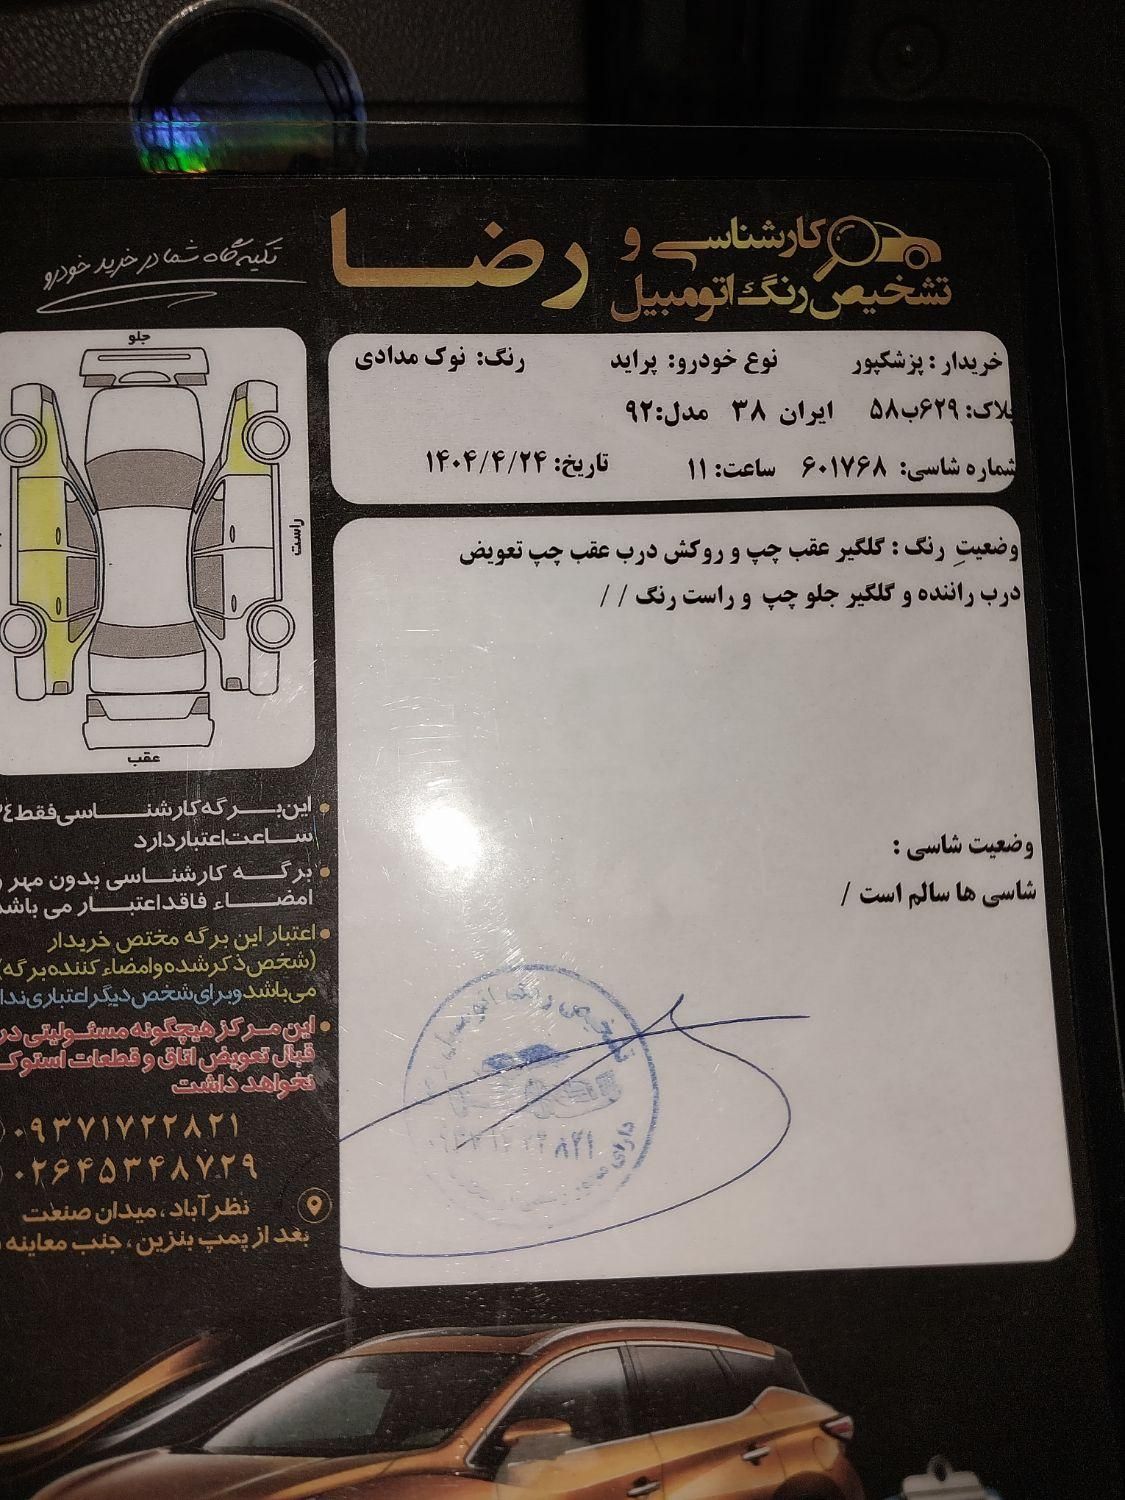 کارشناسی و
تشخیص رنگ اتومبیل
رضا
تکیه گاه شما در خرید خودرو
خریدار : پزشکپور نوع خودرو: پراید رنگ: نوک مدادی
پلاک: ۶۲۹ب۵۸ ایران ۳۸ مدل:۹۲
شماره شاسی: ۶۰۱۷۶۸ ساعت: ۱۱ تاریخ: ۱۴۰۴/۴/۲۴
وضعیتِ رنگ : گلگیر عقب چپ و روکش درب عقب چپ تعویض
درب راننده و گلگیر جلو چپ و راست رنگ / /
وضعیت شاسی :
شاسی ها سالم است /
تشخیص رنگ اتومبیل
دارای
جلو
راست
عقب
این برگه کارشناسی فقط ۲۴
ساعت اعتبار دارد
برگه کارشناسی بدون مهر و
امضاء فاقد اعتبار می باشد
اعتبار این برگه مختص خریدار
(شخص ذکر شده و امضاء کننده برگه)
می باشد و برای شخص دیگر اعتباری ندارد
این مرکز هیچگونه مسئولیتی در
قبال تعویض اتاق و قطعات استوک
نخواهد داشت
۰۹۳۷۱۷۲۲۸۲۱
۰۲۶۴۵۳۴۸۷۲۹
نظرآباد، میدان صنعت
بعد از پمپ بنزین، جنب معاینه